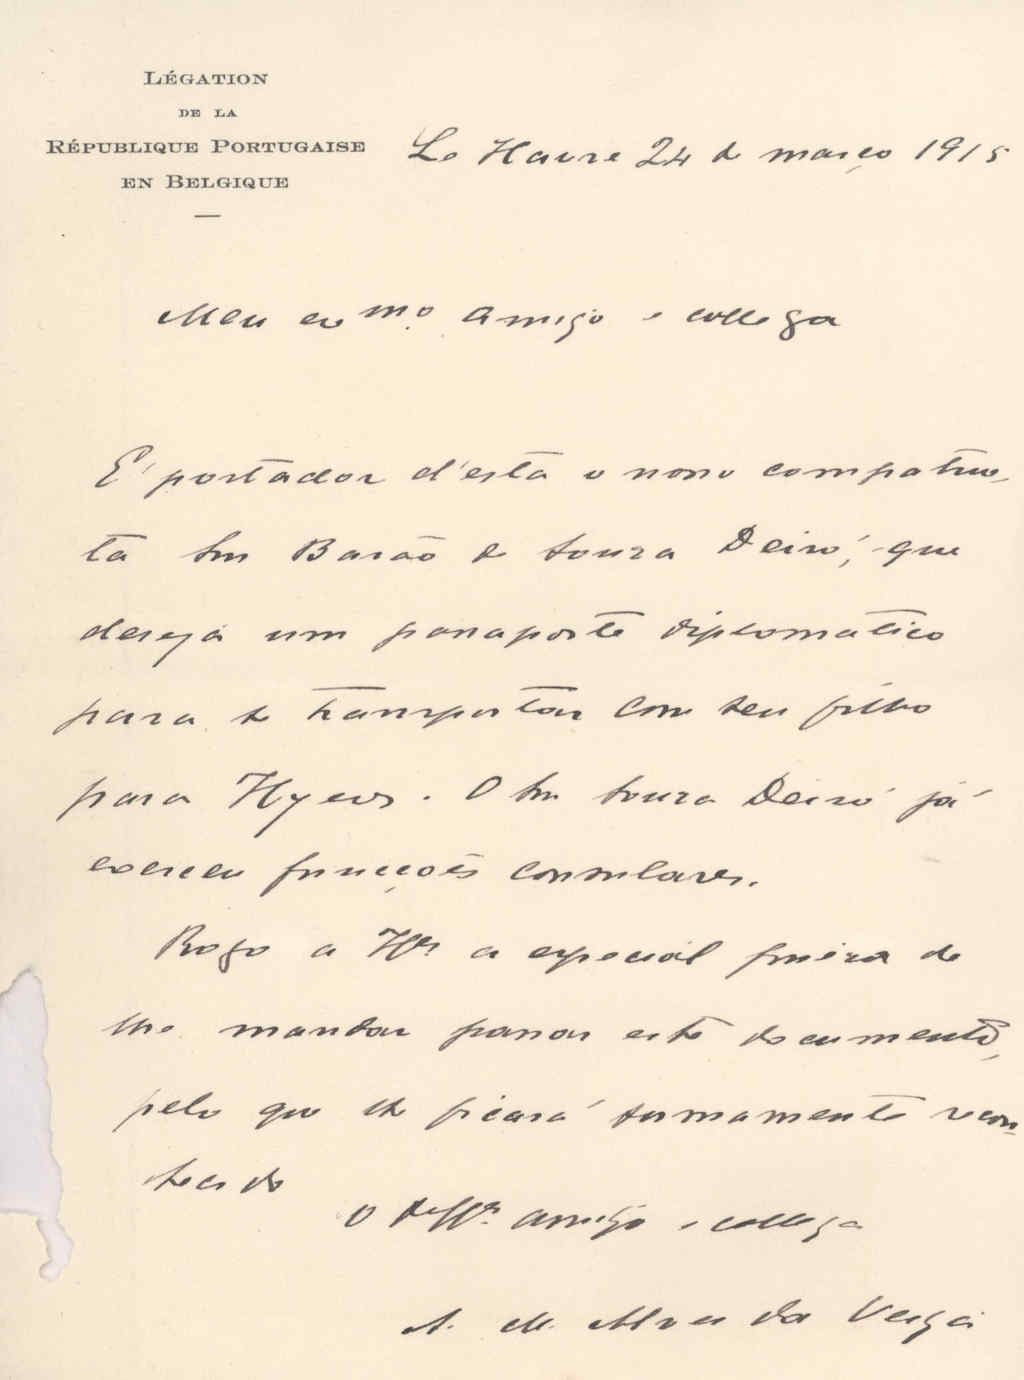 LÉGATION
DE LA
RÉPUBLIQUE PORTUGAISE
EN BELGIQUE
Le Havre 24 de março 1915
Meu exmo. amigo e collega
É portador d'esta o nosso compatrio-
ta Snr Barão de Souza Deiró, que
deseja um passaporte diplomatico
para se transportar com seu filho
para Hyeres. O Snr Souza Deiró já
exerceu funcções consulares.
Rogo a a especial fineza de
lhe mandar passar este documento,
pelo que lhe ficará summamente recon-
hecido
O de amigo e collega
A. M. Alves da Veiga